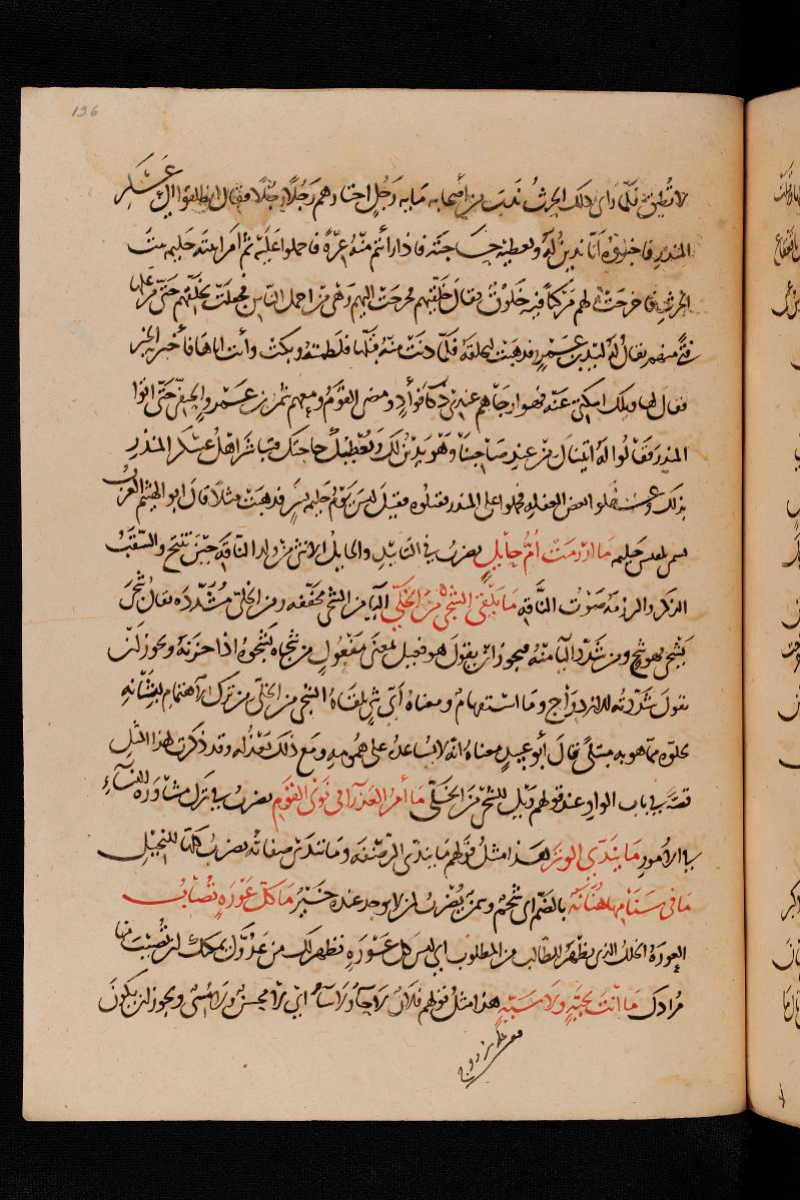 196
لا تُطِيق فلمّا رأى ذلك الحرثُ نَدَبَ من أصحابه مايه رَجُلٍ اختارهم رَجُلًا رَجُلًا فقال انطلقوا الى عَسْكر
المنذر فاخبروه أنّا ندينُ لَهُ ونعطيه حاجته فاذا رأيتم منه غِرّةً فاحملوا عَلَيْهِ ثم أمر ابنته حليمه بنت
الحرث فاخرجت لهم مركنًا فيه خَلُوقٌ فقال خَلّقيهم فخرجَت اليهم وَهى مِن اجمل النّاس فجعلَت تخلّقهم حتّى مرّ عليها
فتًى منهم يقالُ لَهُ لبيد بن عمرو فذهبَت لتخلّقَه فلمّا دنَت منهُ قبّلها فلَطمتهُ وبكت وأتت اباها فأخبرته الخبر
فقال لها ويلك اسكتي عنه فهو ارجاهم عندى ذكآ فؤادٍ ومضى القومُ ومعهم شمر بن عمرو الحنفى حَتّى اتوا
المنذر فقالُوا لهُ اتيناك من عندِ صاحبنا وهو يدينُ لك ويُعطيك حاجتك فتباشرَ اهلُ عَسكر المنذر
بذلك وغفلوا بعض الغفله فحملوا على المنذر فقتلوه فقيل ليسَ يومُ حليمه بسرٍّ فذهبت مثلًا قال ابو الهيثم العربُ
ما أرزمَتْ أُمُّ حايلٍ يضربُ فى التأبيد والحايلُ الانثى من ولد الناقه حِينَ تنتج والسّقبُ
الذكر والرزمه صَوتُ النّاقه مَا يَلْقَى الشّجِى مِنَ الخَلِىّ اليا من الشجى مخفّفه ومن الخلىّ مُشَدّدَه يقالُ شجىَ
يَشْجى فهو شجٍ ومن شدّد اليا منه فيجوز ان يقول هو فعيل بمعنى مَفعُولٍ من شجاه يشجُوهُ اذا حزنهُ ويجوز أن
يقول شدّدتُه للازدواج وما استفهامٌ ومعناهُ أىّ شىٍ يلقاهُ الشجى من الخلىّ من ترك الاهتمام بشانه
خلوّه ممّا هو به مبتلًى قالَ أبو عبيدٍ معناهُ انّه لايُساعدُ على همُومه ومَع ذلك يعذُله وقد ذكرت لهذا المثل
قصّةً فى باب الواو عند قولهم وَيْل للشّجى مِنَ الخَلىّ ما أمرُ العَذرآ فى نَوَى القَوْمِ يضربُ فى تركِ مشاورَه النسآءِ
فى الأمور مَا يَنْدَى الوَتَر هذا مثلُ قولهم مَا يندى الرّضفَه وما تندَى صفاتُه يضربُ كلّها للبخيل
مَا فى سَنَامِها هُنَانَةٌ بالضّم اى شحمٌ وسِمَن يُضرَبُ لمن لا يوجد عنده خَيْرٌ مَا كلّ عَوْرَهٍ تُصابُ
العورَهُ الخللُ الذى يظهر للطالب من المطلوب اى ليس كل عَوره تظهر لك من عَدُوّك يمكنك ان تُصِيبَ منها
مُرادَك مَا أنْتَ بحَبّهٍ ولا سَبَبّهٍ هذا مثلُ قولهم فلانٌ لا حَآ ولا سَآءَ اى لا محسنٌ ولا مُسىٌ ويجوز ان يكُونَ